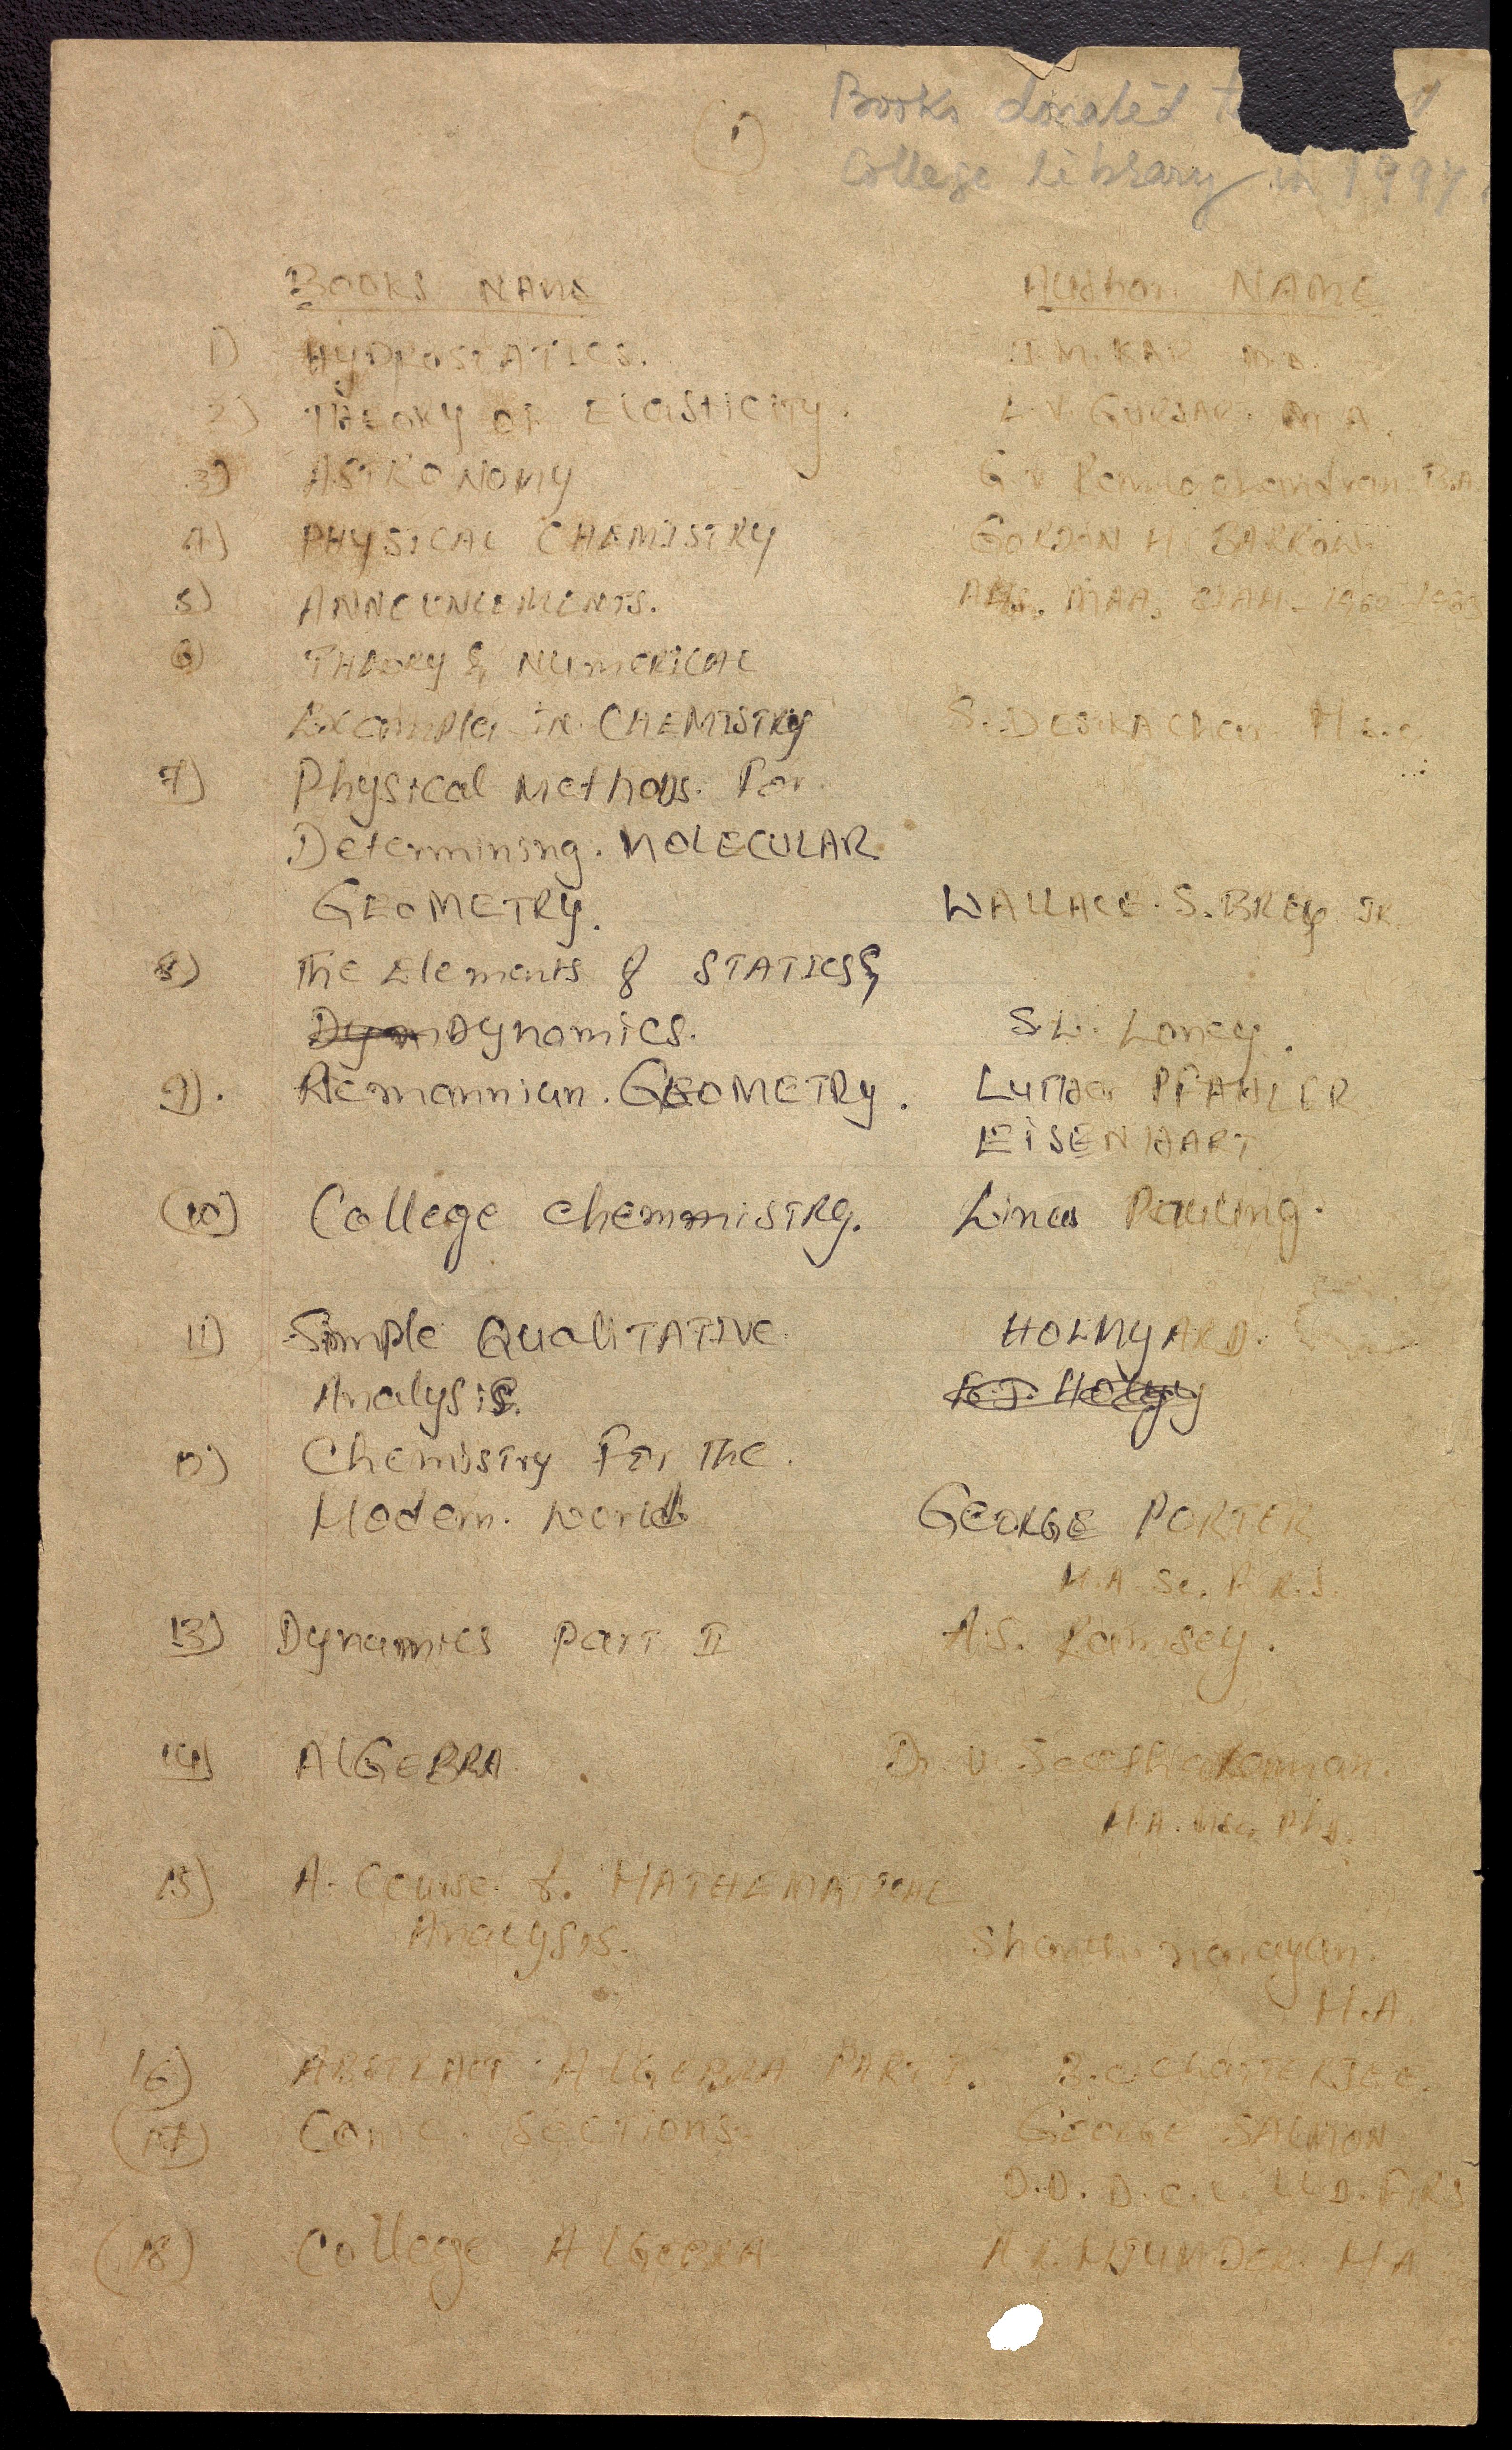 Books donated
(1)
College library in 1997
BOOKS NAME Author NAME
1) HYDROSTATICS. J.M. KAR M.A.
2) THEORY OF Elasticity. L.V. GURJAR M.A.
3) ASTRONOMY G V Ramachandran B.A.
4) PHYSICAL CHEMISTRY GORDON M. BARROW.
5) ANNOUNCEMENTS. MAA. 1962-1963
6) THEORY & NUMERICAL
Examples IN CHEMISTRY S. DESIKAchar M.Sc
7) Physical Methods. For
Determining. MOLECULAR
GEOMETRY. WALLACE. S. BREY JR
8) The Elements of STATICS &
Dynamics. S.L. Loney.
9). Remannian. GEOMETRY. Luther PFAHLER
EISENHART
(10) College chemmistry. Linus Pauling.
11) Simple QualiTATIVE HOLMYARD.
Analysis. E.J. Holyy
12) Chemistry For The.
Modern. World GEORGE PORTER
M.A. Sc. F.R.S.
13) Dynamics Part II A.S. Ramsey.
14) AlGEBRA. Dr V. Seetharaman.
M.A. Phd.
15) A. Course of. MATHEMATICAL
Analysis. Shanthi narayan.
M.A.
16) ABSTRACT ALGEBRA PART I. B.C Chatterjee.
(17) Conic. Sections. George SALMON
D.D. D.C.L. LLD. F.R.S
(18) College AlGebra N.R. MJUMDER. M A